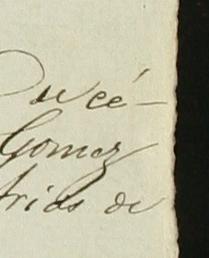 Ducé-
Gomez
trias de